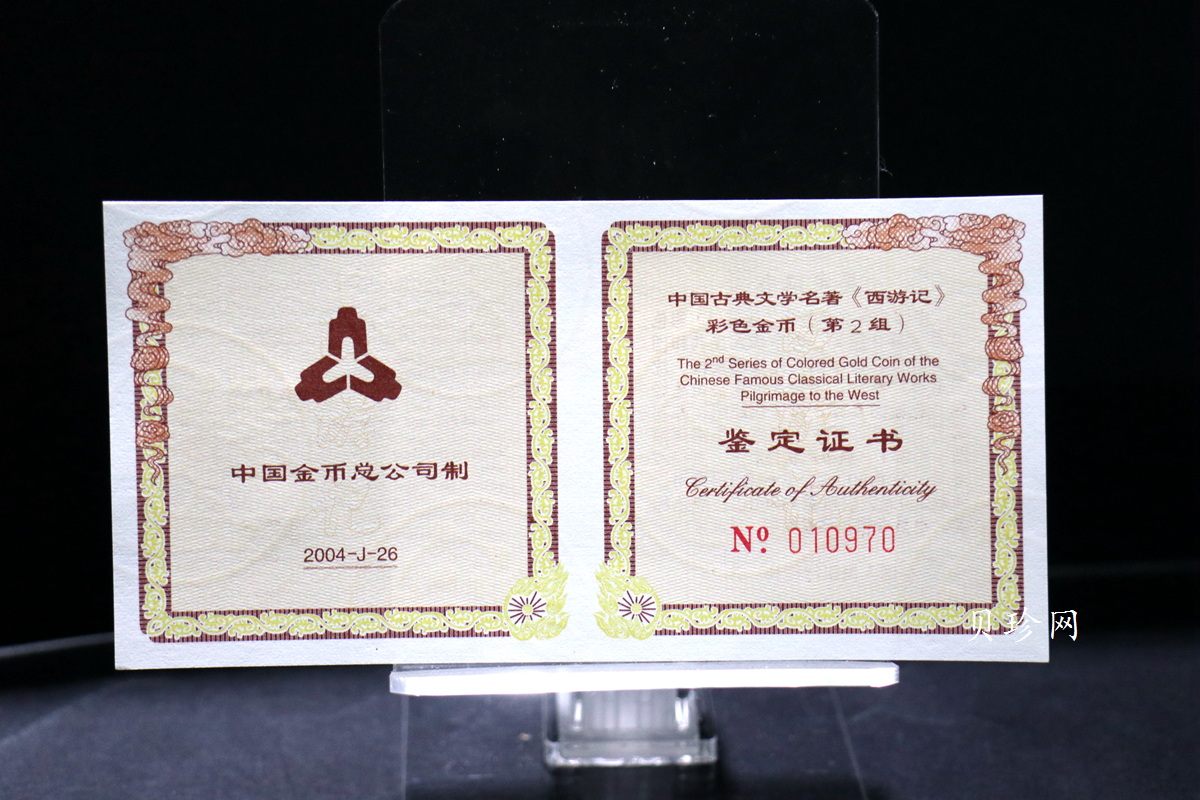 中国金币总公司制
2004-J-26
中国古典文学名著《西游记》
彩色金币（第2组）
The 2nd Series of Colored Gold Coin of the
Chinese Famous Classical Literary Works
Pilgrimage to the West
鉴定证书
Certificate of Authenticity
Nº 010970
贝珍网